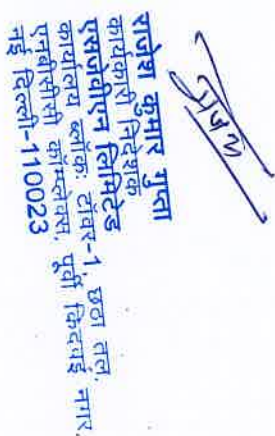 राजेश कुमार गुप्ता
कार्यकारी निदेशक
एसजेवीएन लिमिटेड
कार्यालय ब्लॉक: टॉवर-1, छठा तल,
एनबीसीसी कॉम्प्लेक्स, पूर्वी किदवई नगर,
नई दिल्ली-110023